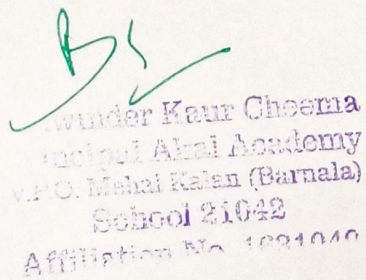 Kaur Cheema
Akal Academy
V.P.O. Mehal Kalan (Barnala)
School 21042
Affiliation No.